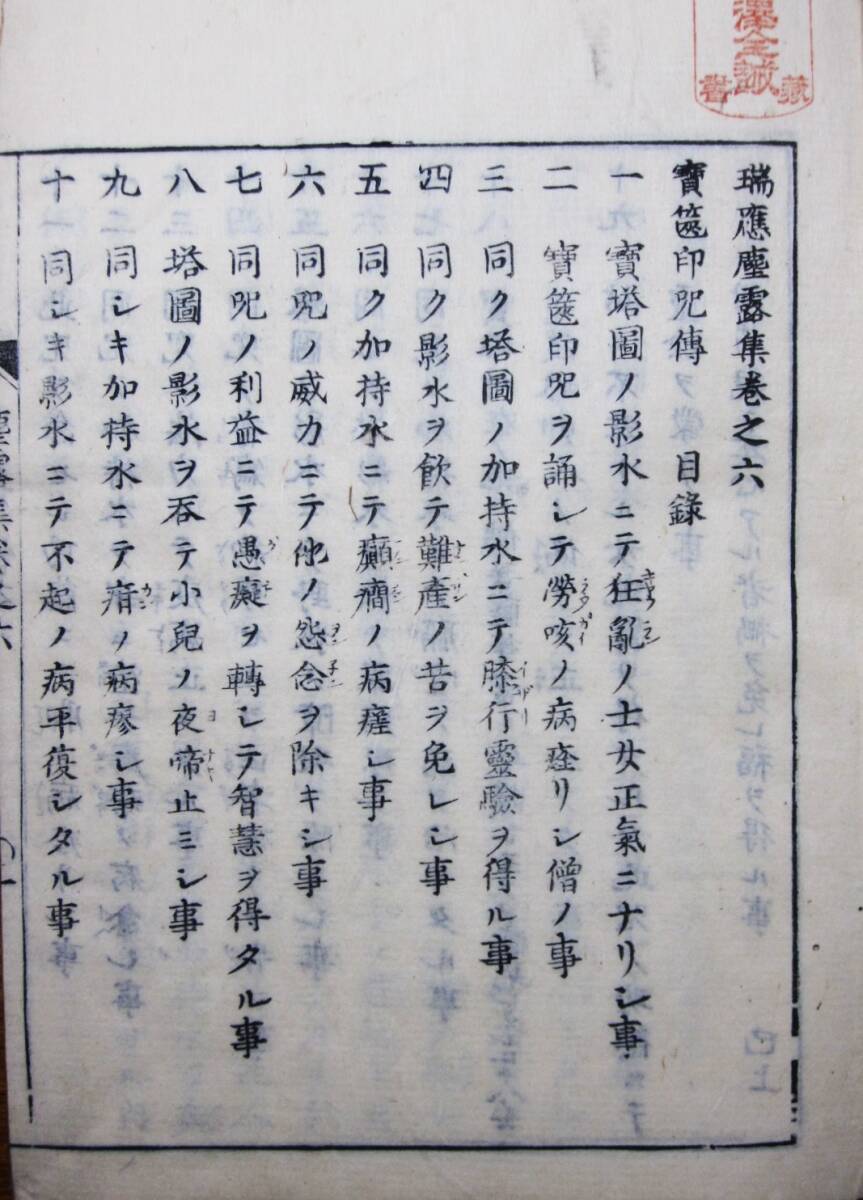 瑞應塵露集卷之六
寶篋印咒傳　目錄
一　寶塔圖ノ影水ニテ狂亂ノ士女正氣ニナリシ事
二　寶篋印咒ヲ誦シテ勞咳ノ病痊リシ僧ノ事
三　同ク塔圖ノ加持水ニテ膝行靈驗ヲ得ル事
四　同ク影水ヲ飲テ難產ノ苦ヲ免レシ事
五　同ク加持水ニテ癲癎ノ病痊シ事
六　同咒ノ威力ニテ他ノ怨念ヲ除キシ事
七　同咒ノ利益ニテ愚癡ヲ轉シテ智慧ヲ得タル事
八　塔圖ノ影水ヲ吞テ小兒ノ夜啼止ミシ事
九　同シキ加持水ニテ疳ノ病瘳シ事
十　同シキ影水ニテ不起ノ病平復シタル事
全誠
藏書